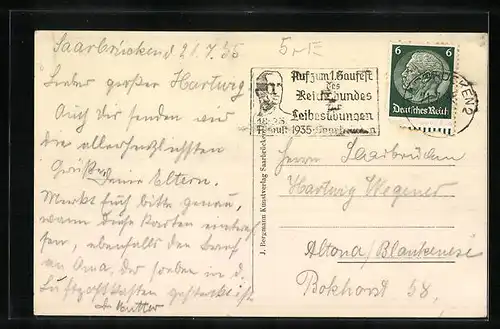 Saarbrücken d 21.7.35
5,-E
Lieber großer Hartwig,
Auch Dir senden wir
die allerherzlichsten
Grüße Deine Eltern.
Merkt Euch bitte genau,
wann diese Karten eintref
fen, ebenfalls den Brief
an Oma, der soeben in d.
Luftpostkasten gesteckt ist
D. Mutter
Auf zum 1. Gaufest
des
Reichsbundes
für
Leibesübungen
18-25.
August 1935 Saarbrücken
6 6
Deutsches Reich
SAARBRÜCKEN 2
Herrn Saarbrücken
Hartwig Wegener
Altona/Blankenese
Bokhorst 38,
J. Bergmann Kunstverlag Saarbrücken